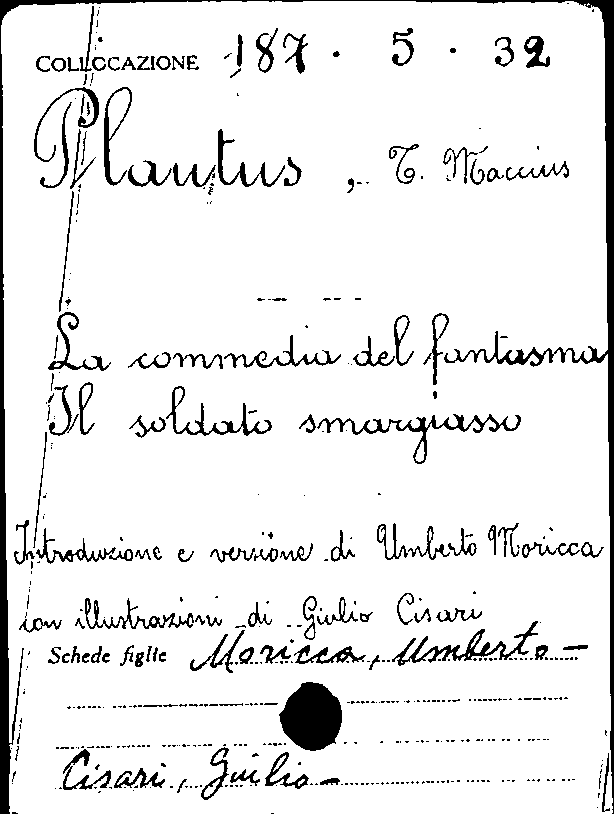 COLLOCAZIONE 187 . 5 . 32
Plautus, T. Maccius
La commedia del fantasma
Il soldato smargiasso
Introduzione e versione di Umberto Moricca
con illustrazioni di Giulio Cisari
Schede figlie Moricca, Umberto -
Cisari, Giulio -